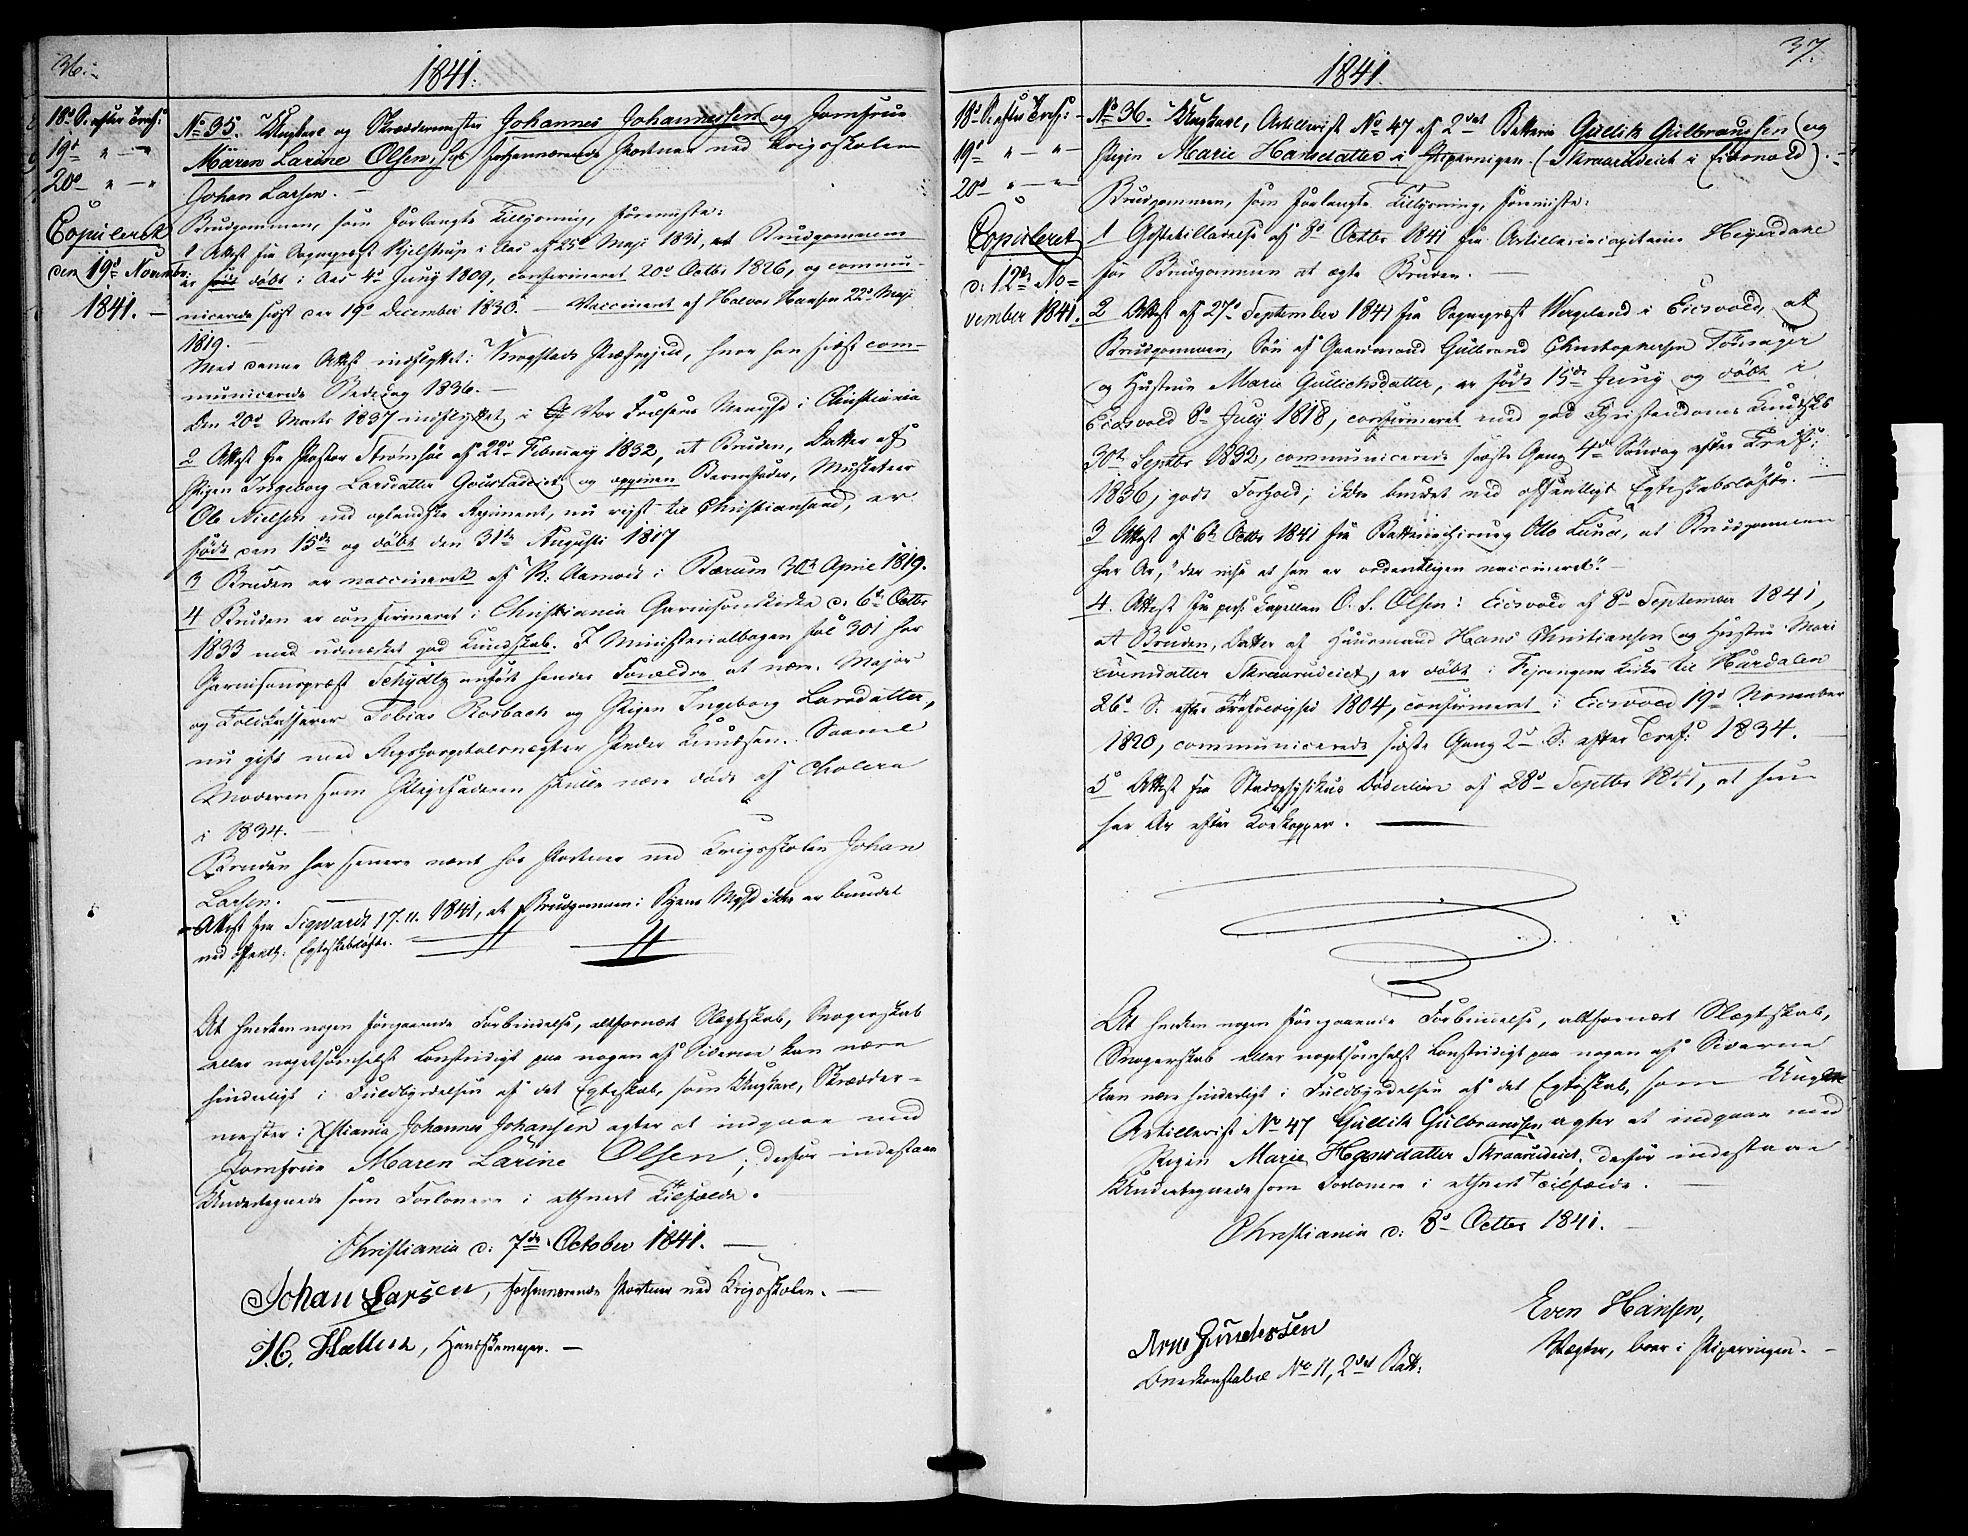 36.
1841.
18d S. efter Tref:
19d " — "
20d " — "
Copuleret
den 19d Novembr:
1841. —
No 35. Ungkarl og Skræddermester Johannes Johannessen og Jomfrue
Maren Larine Olsen, hos forhenværende Portner ved Krigsskolen
Johan Larsen. —
Brudgommen, som forlangte Tillysning, foreviste:
1 Attest fra Sognepræst Kjelstrup i Aas af 25d Maji 1831, at Brudgommen
er født døbt i Aas 4d Juny 1809, confirmeret 20d Octbr 1826, og commu-
nicerede sidst den 19d December 1830. — Vaccineret af Halvor Hansen 22d Maji
1819. —
Med denne Attest indflyttet i Krogstads Præstegjeld, hvor han sidst com-
municerede Bededag 1836. —
Den 20d Marts 1837 indflyttet i Vor Frelsers Menighd i Christiania
2 Attest fra Pastor Strømsøe af 22d Februar 1832, at Bruden, Datter af
Pigen Ingeborg Larsdatter og opgiven Barnefader, Musketeer
Ole Nielsen ved oplandske Regiment, nu rejst til Christiansand, er
født den 15de og døbt den 31te Augusti 1817
3 Bruden er vaccineret af R. Aamodt i Bærum 30te April 1819.
4 Bruden er confirmeret i Christiania Garnisonskirke d. 6te Octbr
1833 med udmærket god Kundskab. I Ministerialbogen fol 301 har
Garnisonspræst Schydtz anført hendes Forældre at være: Major
og Toldkasserer Tobias Rosbach og Pigen Ingeborg Larsdatter,
nu gift med Rigshospitalsvægter Peder Knudsen. Saavel
Moderen som Plejefaderen skulle være døde af Cholera
i 1834. —
Bruden har senere været hos Portner ved Krigsskolen Johan
Larsen. —
Attest fra Sigwardt 17.11. 1841, at Brudgommen i Byens Mghd ikke er bundet
ved offentl: Egteskabsløfte.
At hverken nogen foregaaende Forbindelse, altfornært Slægtskab, Svogerskab
eller nogetsomhelst Lovstridigt paa nogen af Siderne kan være
hinderligt i Fuldbyrdelsen af det Egteskab, som Ungkarl, Skrædder-
mester i Xstiania Johannes Johansen agter at indgaae med
Jomfrue Maren Larine Olsen, derfor indestaae
Undertegnede som Forlovere i ethvert Tilfælde.
Christiania d. 7de October 1841. —
Johan Larsen, forhenværende Portner ved Krigsskolen. —
H. Hællen, Handskemager. —
37.
1841.
18d S. efter Tref: —
19d " — " —
20d " — " —
Copuleret
d. 12te No-
vember 1841.
No 36. Ungkarl, Artillerist No 47 af 2det Batteri Gullik Gulbrandsen og
Pigen Marie Hansdatter i Pipervigen. (Skraarudeiet i Eidsvold). —
Brudgommen, som forlangte Tillysning, foreviste:
1 Giftetilladelse af 8d Octbr 1841 fra Artilleriecapitaine Hegerdahl
for Brudgommen at ægte Bruden. —
2 Attest af 27d September 1841 fra Sognepræst Wergeland i Eidsvold, at
Brudgommen, Søn af Gaardmand Gulbrand Christophersen
og Hustrue Marie Gullichsdatter, er født 15de Juny og døbt i
Eidsvold 8d July 1818, confirmeret med god Christendoms Kundskab
30te Septbr 1832, communicerede sidste Gang 4de Søndag efter Tref:
1836, godt Forhold; ikke bundet ved offentligt Egteskabsløfte. —
3 Attest af 6te Octbr 1841 fra Batterichirurg Otto Lund, at Brudgommen
har Ar, "der vise at han er ordentligen vaccineret". —
4. Attest fra pers: Capellan O. S. Olsen i Eidsvold af 8d September 1841,
at Bruden, Datter af Huusmand Hans Christiansen og Hustrue Mari
Evensdatter Skraarudeiet, er døbt i Feiringens Kirke til Hurdalen
26d S. efter Trefoldighed 1804, confirmeret i Eidsvold 19d November
1820, communicerede sidste Gang 2d S. efter Tref: 1834. —
5d Attest fra Stadsphysikus Døderlein af 28d Septbr 1841, at hun
har Ar efter Koekopper. —
At hverken nogen foregaaende Forbindelse, altfornært Slægtskab,
Svogerskab eller nogetsomhelst Lovstridigt paa nogen af Siderne
kan være hinderligt i Fuldbyrdelsen af det Egteskab, som Ungkarl
Artillerist No 47 Gullik Gulbrandsen agter at indgaae med
Pigen Marie Hansdatter Skraarudeiet, derfor indestaae
Undertegnede som Forlovere i ethvert Tilfælde. —
Christiania d. 8d Octbr 1841. —
Even Hansen,
Vægter, boer i Pipervigen. —
Arne Gundersen
Overkonstabel No 11, 2det Batt: